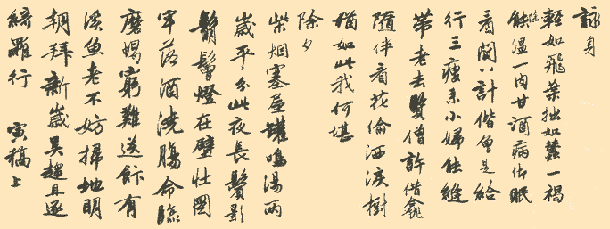 詠身
輕如飛葉拙如蠶一褐
能溫一肉甘酒病眠
看計偕曾是給
行三小婦能縫
帶老去賢僧許借龕
隨伴看花偷洒淚樹
猶如此我何堪
除夕
柴烟塞屋罐鳴湯兩
歲平分此夜長鬢影
鬅鬙燈在壁壯圖
牢落酒澆腸命臨
磨蝎窮難送飯有
溪魚老不妨掃地明
朝拜新歲吳趨且逐
綺羅行 寅稿上